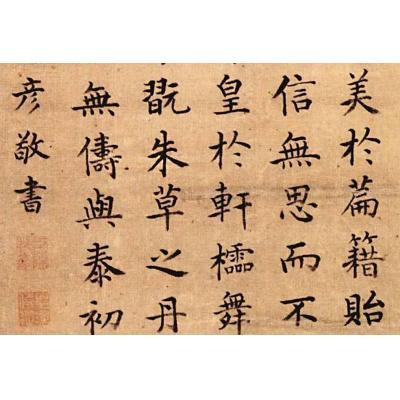 美於篇籍貽
信無思而不
皇於軒櫺舞
翫朱草之丹
無儔與泰初
彦敬書